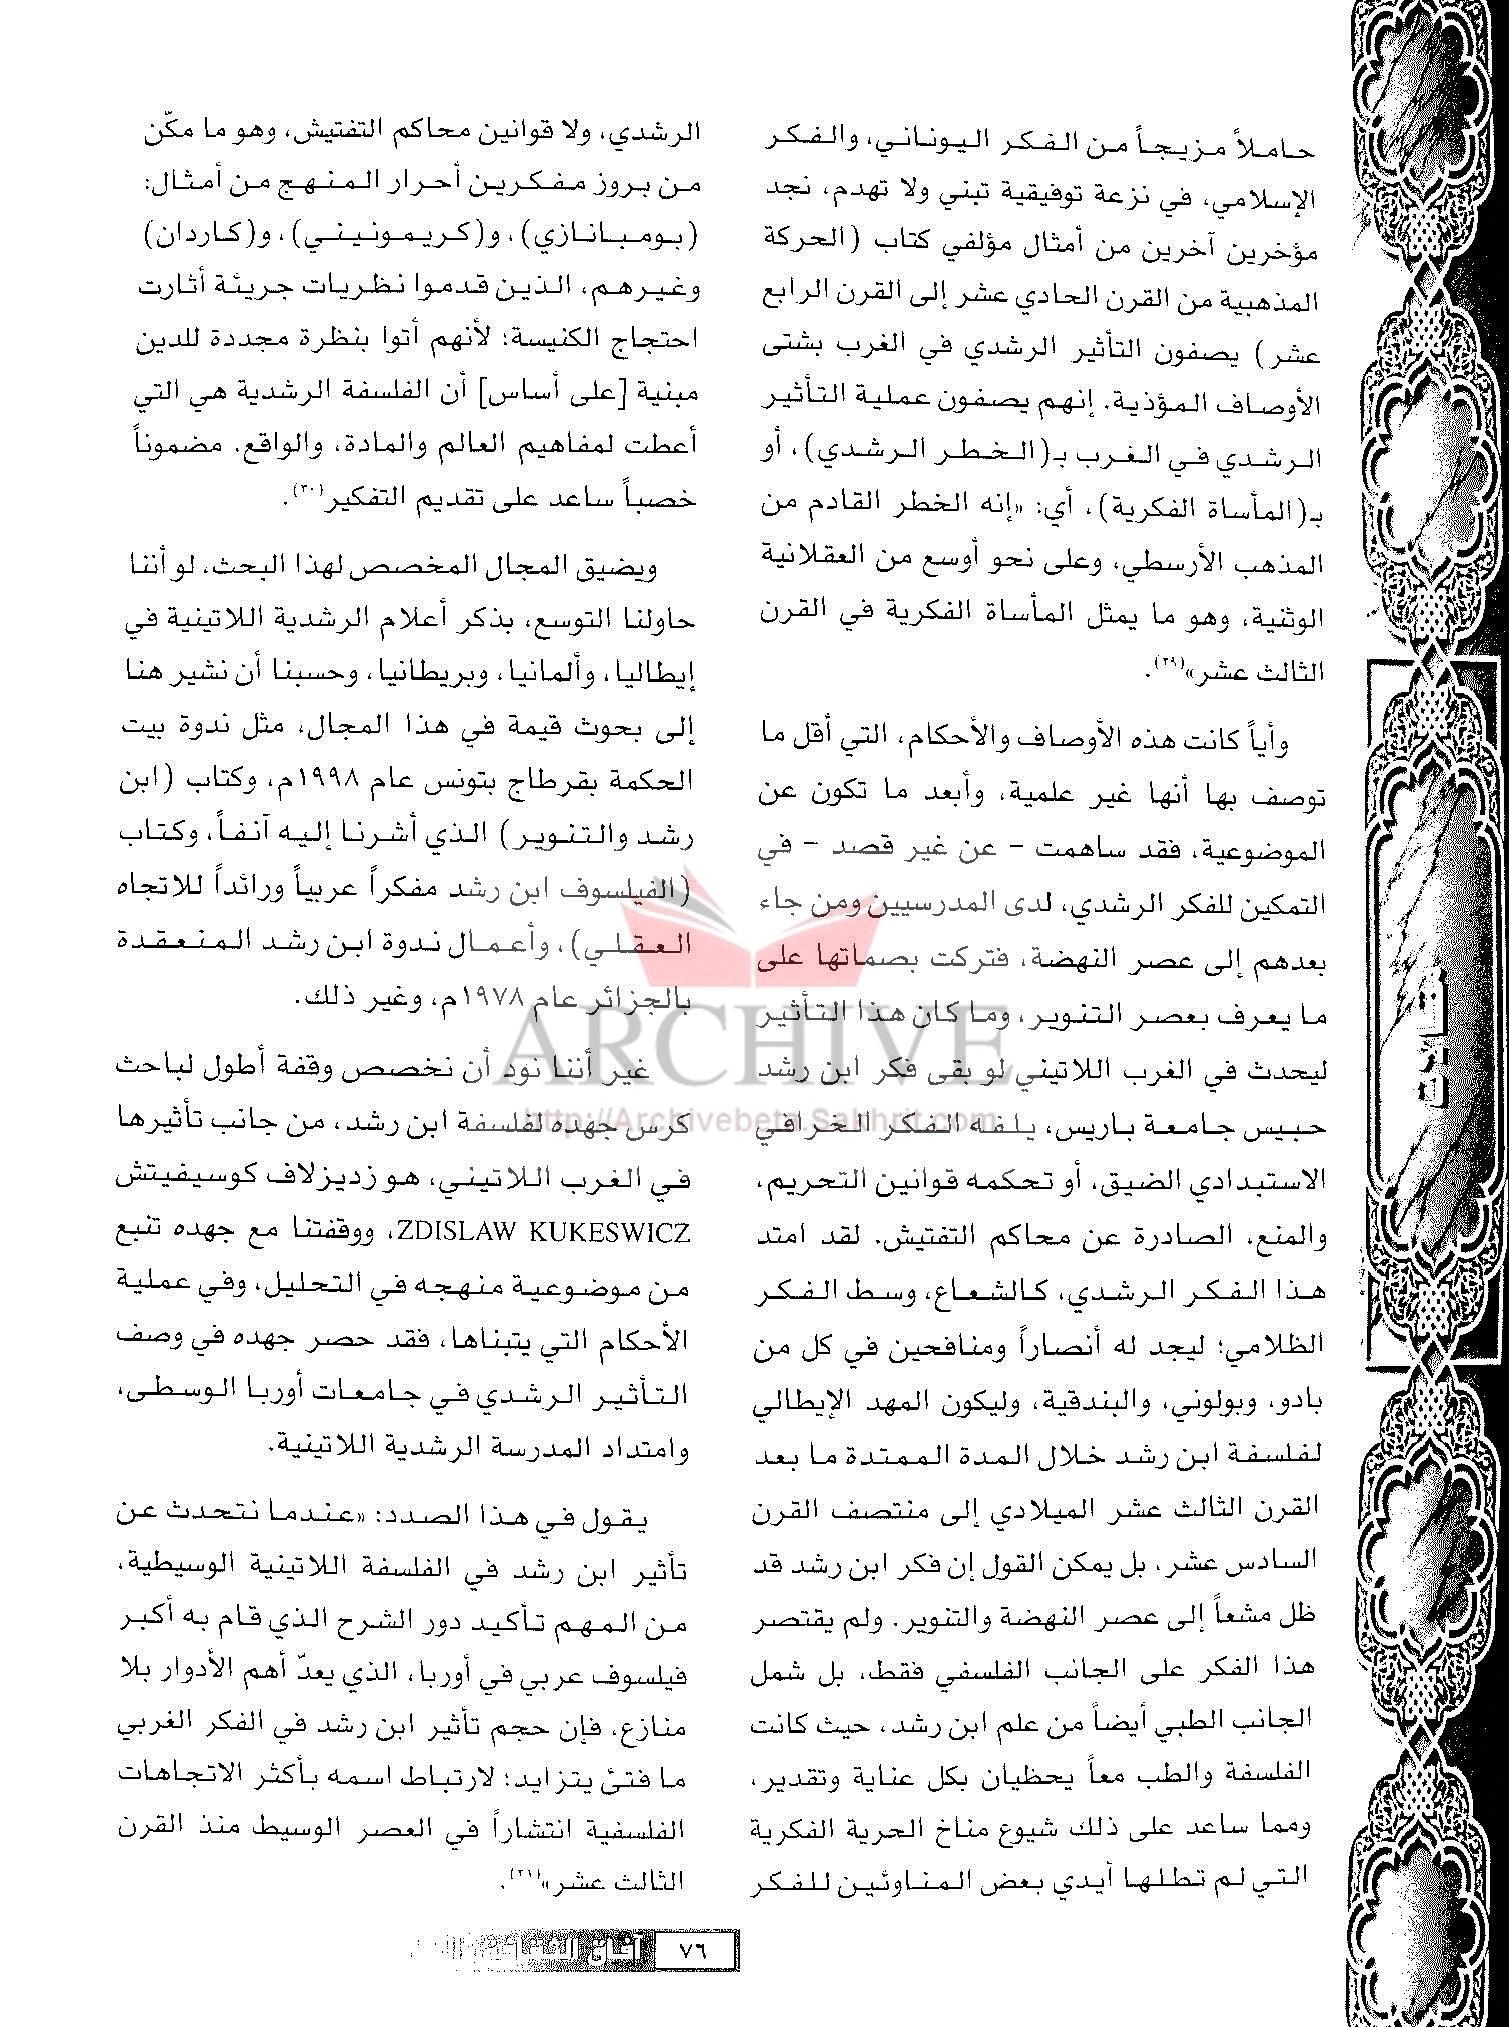 حاملاً مزيجاً من الفكر اليوناني، والفكر
الإسلامي، في نزعة توفيقية تبني ولا تهدم، نجد
مؤخرين آخرين من أمثال مؤلفي كتاب (الحركة
المذهبية من القرن الحادي عشر إلى القرن الرابع
عشر) يصفون التأثير الرشدي في الغرب بشتى
الأوصاف المؤذية. إنهم يصفون عملية التأثير
الرشدي في الغرب بـ(الخطر الرشدي)، أو
بـ(المأساة الفكرية)، أي: «إنه الخطر القادم من
المذهب الأرسطي، وعلى نحو أوسع من العقلانية
الوثنية، وهو ما يمثل المأساة الفكرية في القرن
الثالث عشر»(٢٩).
وأياً كانت هذه الأوصاف والأحكام، التي أقل ما
توصف بها أنها غير علمية، وأبعد ما تكون عن
الموضوعية، فقد ساهمت - عن غير قصد - في
التمكين للفكر الرشدي، لدى المدرسيين ومن جاء
بعدهم إلى عصر النهضة، فتركت بصماتها على
ما يعرف بعصر التنوير، وما كان هذا التأثير
ليحدث في الغرب اللاتيني لو بقى فكر ابن رشد
حبيس جامعة باريس، يلفه الفكر الخرافي
الاستبدادي الضيق، أو تحكمه قوانين التحريم،
والمنع، الصادرة عن محاكم التفتيش. لقد امتد
هذا الفكر الرشدي، كالشعاع، وسط الفكر
الظلامي؛ ليجد له أنصاراً ومنافحين في كل من
بادو، وبولوني، والبندقية، وليكون المهد الإيطالي
لفلسفة ابن رشد خلال المدة الممتدة ما بعد
القرن الثالث عشر الميلادي إلى منتصف القرن
السادس عشر، بل يمكن القول إن فكر ابن رشد قد
ظل مشعاً إلى عصر النهضة والتنوير. ولم يقتصر
هذا الفكر على الجانب الفلسفي فقط، بل شمل
الجانب الطبي أيضاً من علم ابن رشد، حيث كانت
الفلسفة والطب معاً يحظيان بكل عناية وتقدير،
ومما ساعد على ذلك شيوع مناخ الحرية الفكرية
التي لم تطلها أيدي بعض المناوئين للفكر
الرشدي، ولا قوانين محاكم التفتيش، وهو ما مكّن
من بروز مفكرين أحرار المنهج من أمثال:
(بومبانازي)، و(كريمونيني)، و(كاردان)
وغيرهم، الذين قدموا نظريات جريئة أثارت
احتجاج الكنيسة؛ لأنهم أتوا بنظرة مجددة للدين
مبنية [على أساس] أن الفلسفة الرشدية هي التي
أعطت لمفاهيم العالم والمادة، والواقع، مضموناً
خصباً ساعد على تقديم التفكير(٣٠).
ويضيق المجال المخصص لهذا البحث، لو أننا
حاولنا التوسع، بذكر أعلام الرشدية اللاتينية في
إيطاليا، وألمانيا، وبريطانيا، وحسبنا أن نشير هنا
إلى بحوث قيمة في هذا المجال، مثل ندوة بيت
الحكمة بقرطاج بتونس عام ١٩٩٨م، وكتاب (ابن
رشد والتنوير) الذي أشرنا إليه آنفاً، وكتاب
(الفيلسوف ابن رشد مفكراً عربياً ورائداً للاتجاه
العقلي)، وأعمال ندوة ابن رشد المنعقدة
بالجزائر عام ١٩٧٨م، وغير ذلك.
غير أننا نود أن نخصص وقفة أطول لباحث
كرس جهده لفلسفة ابن رشد، من جانب تأثيرها
في الغرب اللاتيني، هو زديزلاف كوسيفيتش
ZDISLAW KUKESWICZ، ووقفتنا مع جهده تنبع
من موضوعية منهجه في التحليل، وفي عملية
الأحكام التي يتبناها، فقد حصر جهده في وصف
التأثير الرشدي في جامعات أوربا الوسطى،
وامتداد المدرسة الرشدية اللاتينية.
يقول في هذا الصدد: «عندما نتحدث عن
تأثير ابن رشد في الفلسفة اللاتينية الوسيطية،
من المهم تأكيد دور الشرح الذي قام به أكبر
فيلسوف عربي في أوربا، الذي يعدّ أهم الأدوار بلا
منازع، فإن حجم تأثير ابن رشد في الفكر الغربي
ما فتئ يتزايد؛ لارتباط اسمه بأكثر الاتجاهات
الفلسفية انتشاراً في العصر الوسيط منذ القرن
الثالث عشر»(٣١).
مقالات
ARCHIVE
http://Archivebeta.Sakhrit.com
٧٦ آفاق الثقافة